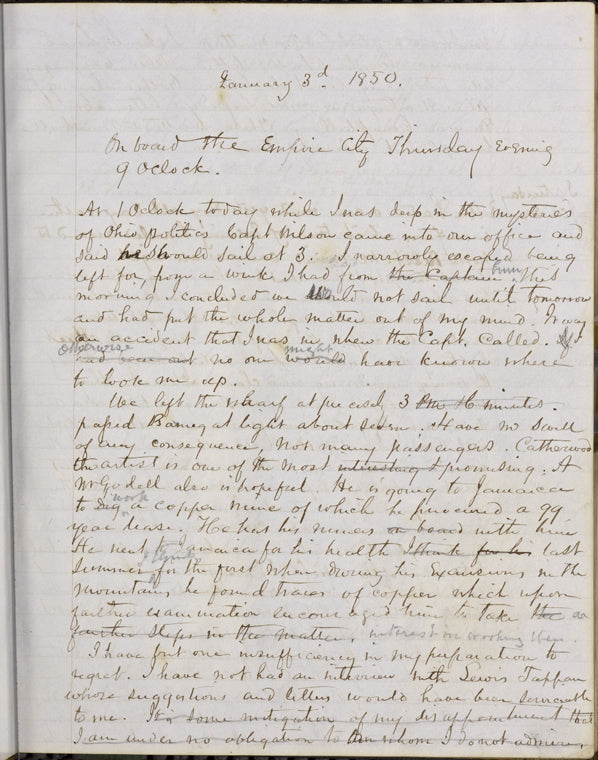 January 3d. 1850.
On board the Empire City Thursday Evening
9 Oclock.
At 1 Oclock today while I was deep in the mysteries
of Ohio politics Capt Wilson came into our office and
said he should sail at 3. I narrowly escaped being
left for, from a work I had from the Captain him this
morning I concluded we would not sail until tomorrow
and had put the whole matter out of my mind. It was
an accident that I was in, when the Capt. called. If
Otherwise
had been out no one would might have known where
to look me up.
We left the wharf at precisely 3 Pm 16 minutes.
passed Barnegat light about seven. Have no swell
of any consequence, Not many passengers. Catherwood
the artist is one of the most interesting & promising. A
Mr Godell also is hopeful. He is going to Jamaica
to dig work a copper mine of which he procured a 99
year lease. He has his miners on board with him
He went to Jamaica for his health I think for his last
summer for the first when during his Excursions in the
mountains he found traces of copper which upon
farther examination encouraged him to take the an
further steps in the matter. interest in working them.
I have but one insufficiency in my preparation to
regret. I have not had an interview with Lewis Tappan
whose suggestions and letters would have been serviceable
to me. It is some mitigation of my disappointment that
I am under no obligation to one whom I do not admire,